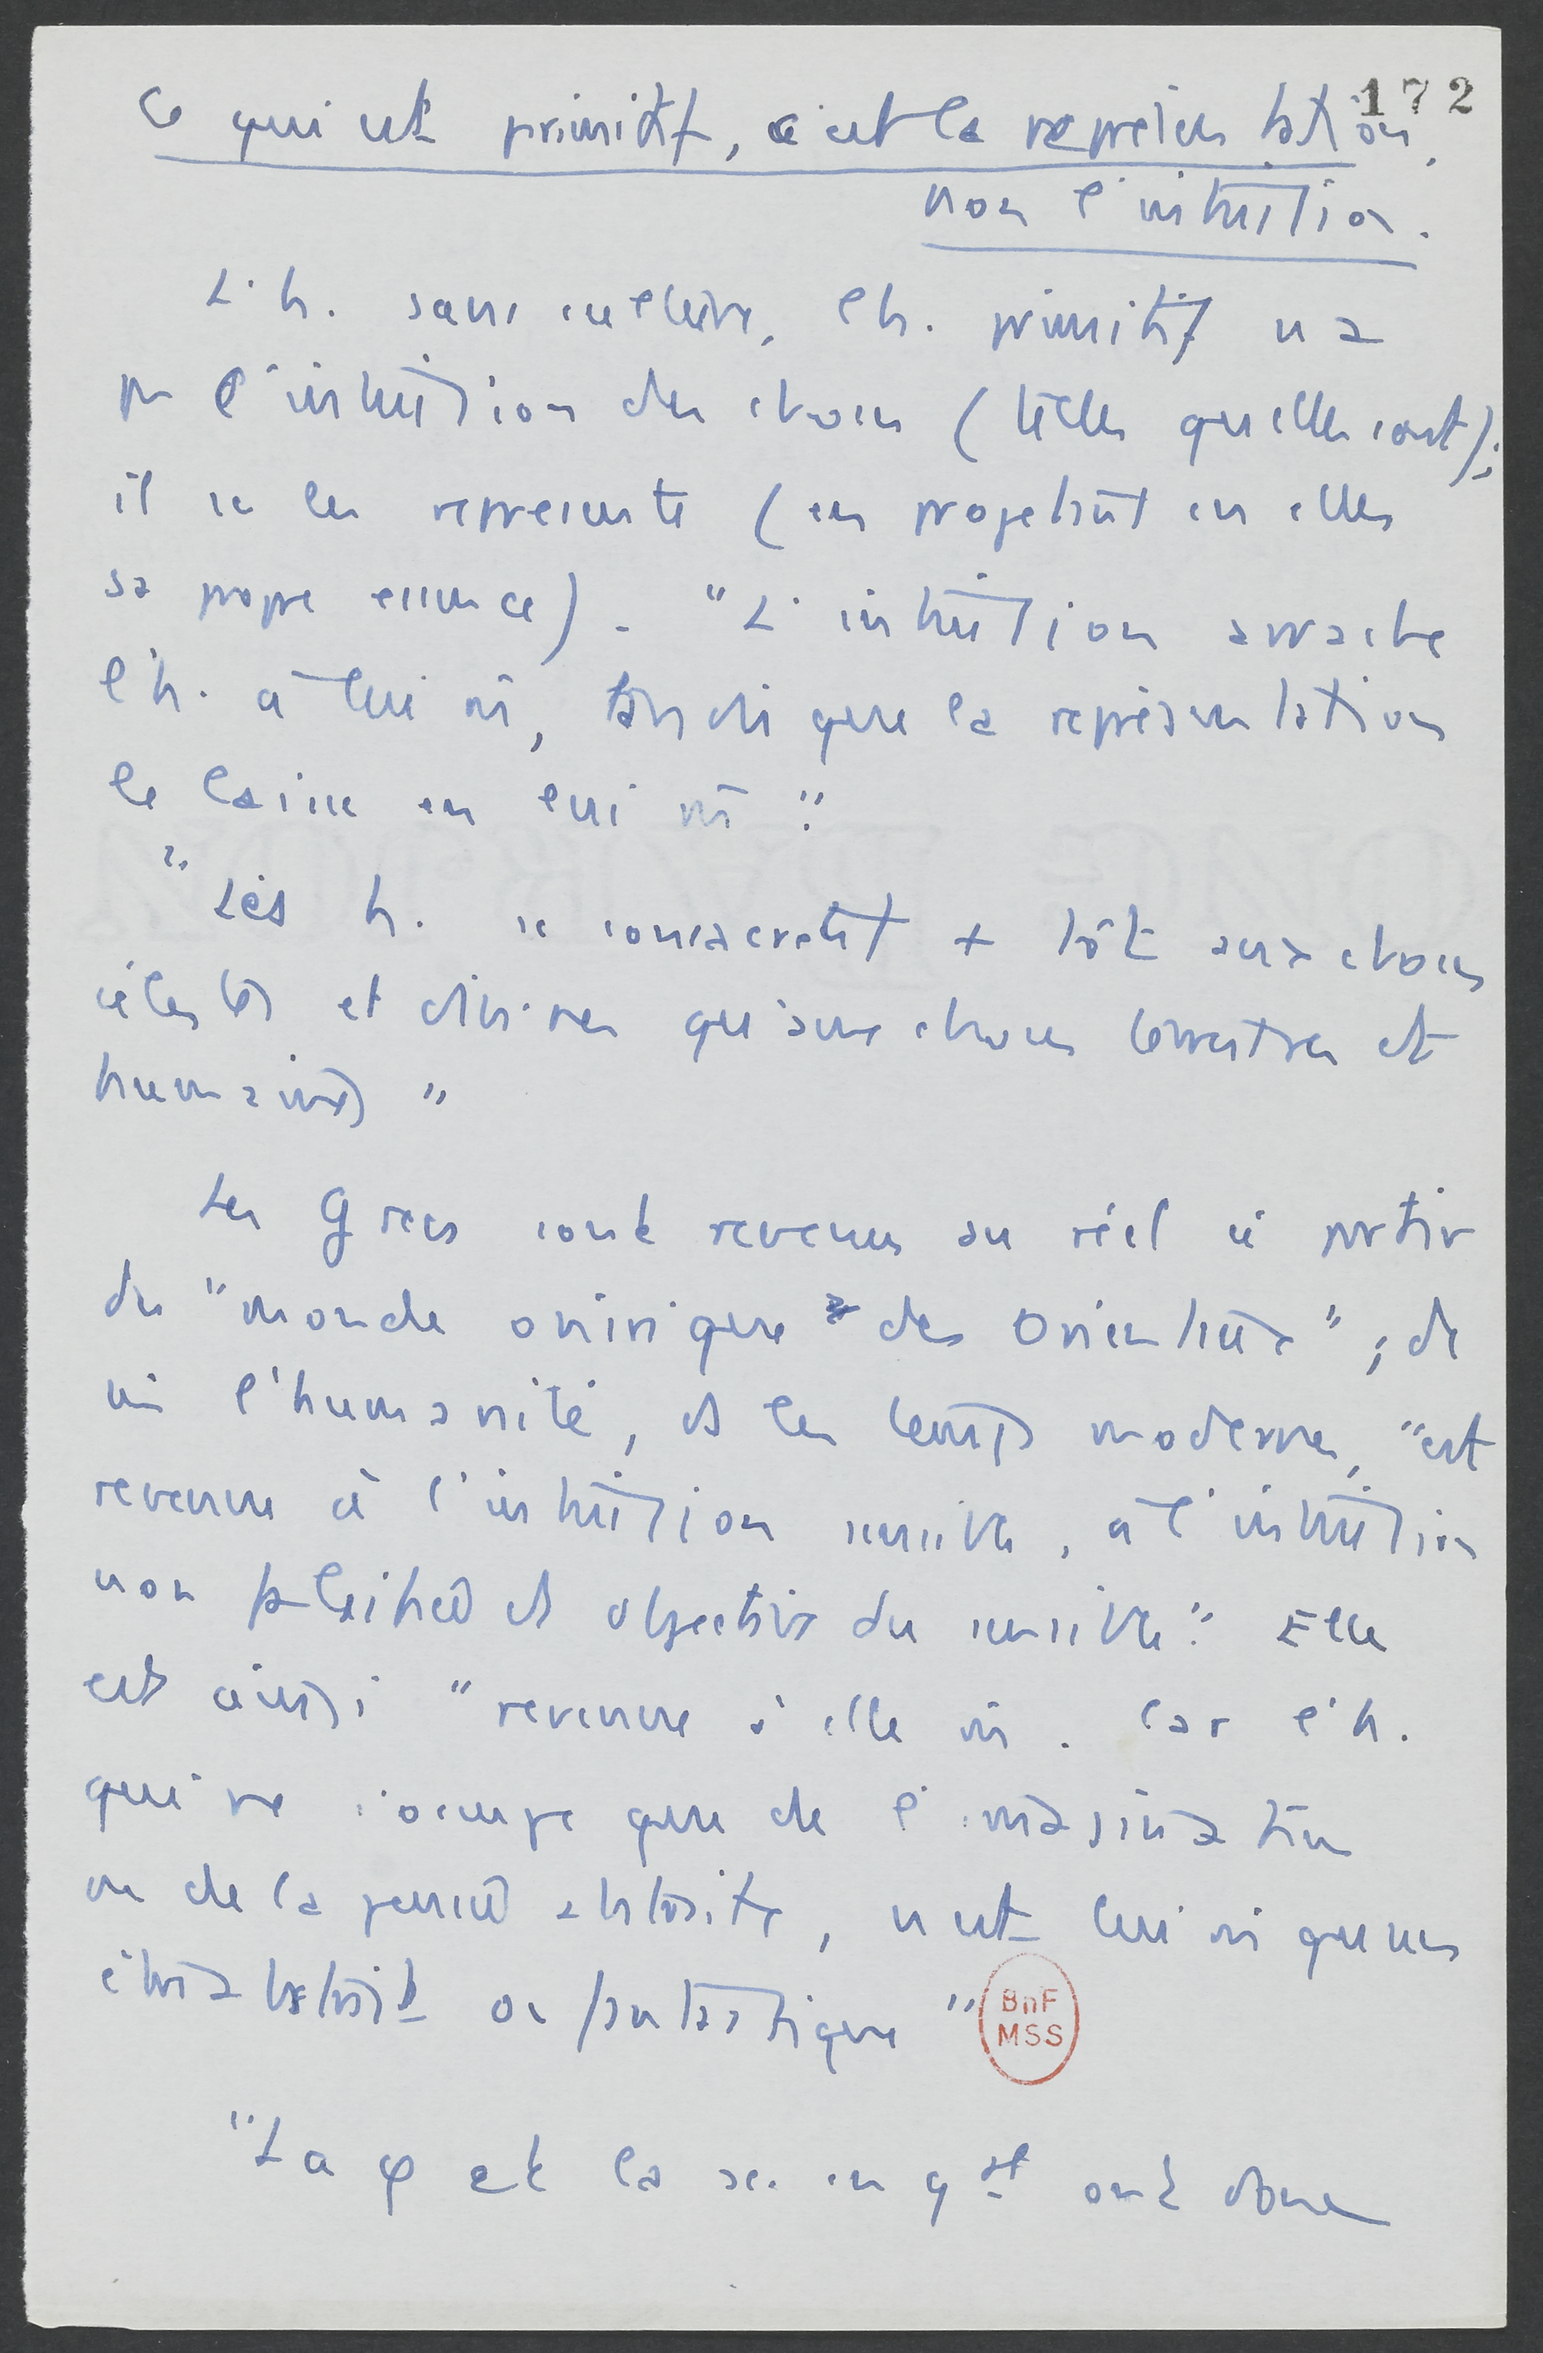 172
Ce qui est primitif, c'est la représentation,
non l'intuition.
L'h. sans culture, l'h. primitif n'a
pas l'intuition des choses (telles qu'elles sont);
il se les représente (en projetant en elles
sa propre essence). "L'intuition arrache
l'h. à lui m̂, tandis que la représentation
le laisse en lui m̂."
"Les h. se consacrent + tôt aux choses
célestes et divines qu'aux choses terrestres et
humaines"
Les Grecs sont revenus au réel à partir
du "monde onirique des Orientaux"; de
m̂ l'humanité, ds les temps modernes, "est
revenue à l'intuition sensible, à l'intuition
non falsifiée et objective du sensible." Elle
est ainsi "revenue à elle m̂. Car l'h.
qui ne s'occupe que de l'imagination
ou de la pensée abstraite, n'est lui m̂ qu'un
être abstrait ou fantastique"
BnF
MSS
"La φ et la sc. en gal ont donc